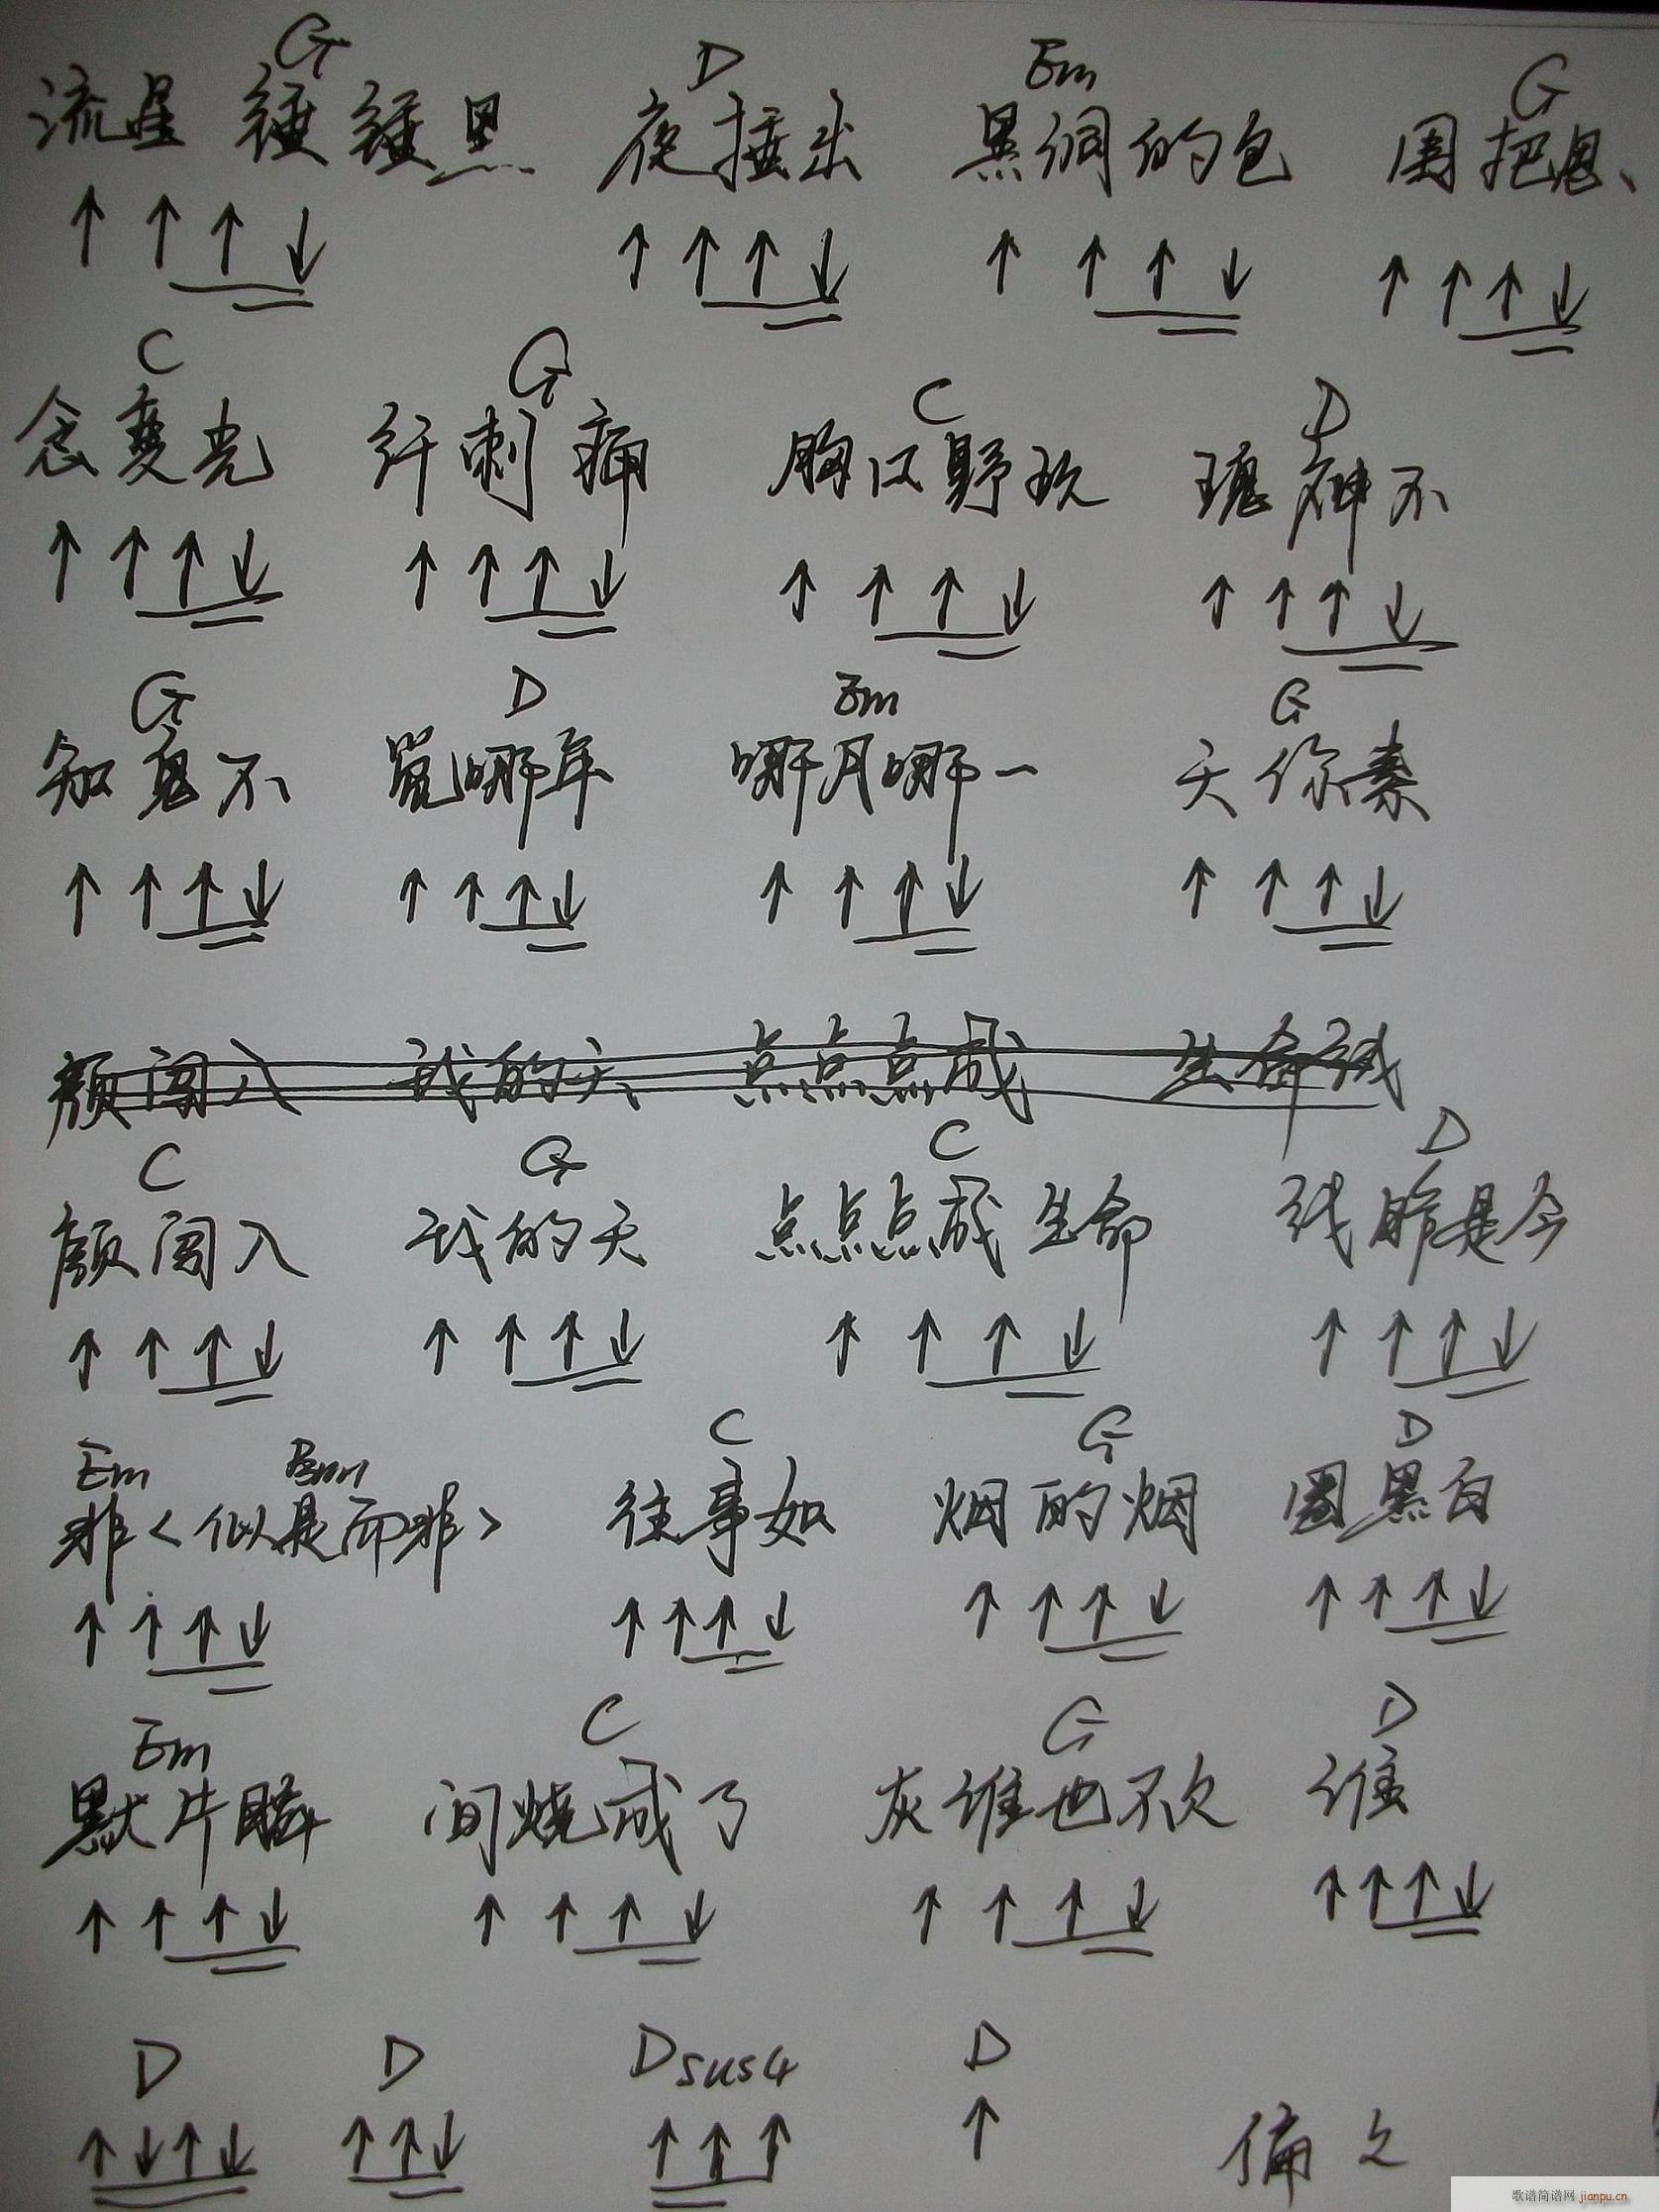 G D Em G
流星 锤锤黑 夜捶出 黑洞的包 围把思、
C G C D
念变光 纤刺痛 胸口野玫 瑰神不
G D Em G
知鬼不 觉哪年 哪月哪一 天你素
颜闯入 我的天 点点点成 生命线
C G C D
颜闯入 我的天 点点点成生命 线昨是今
Em Bm C G D
非<似是而非> 往事如 烟的烟 圈黑白
Em C G D
默片瞬 间烧成了 灰谁也不欠 谁
D D Dsus4 D
偏之
歌谱简谱网 jianpu.cn